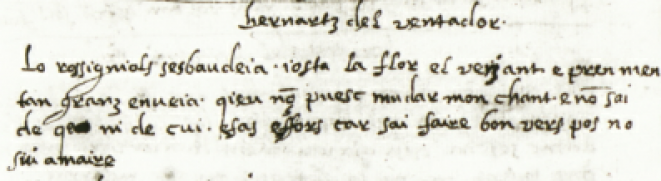 bernartz del ventador·
Lo rossignols sesbaudeia · iosta la flor el verjant· e pren men
tan granz enueia· qieu nõ puesc mudar mon chant· e nõ sai
de ni de cui · esas esfors car sai faire bon vers pos no
sui amaire